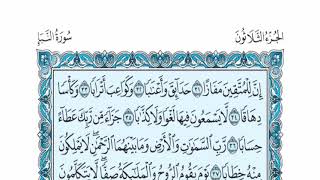 الجُزْءُ الثَّلَاثُونَ
سُورَةُ النَّبَإِ
إِنَّ لِلْمُتَّقِينَ مَفَازًا ٣١ حَدَآئِقَ وَأَعْنَٰبًا ٣٢ وَكَوَاعِبَ أَتْرَابًا ٣٣ وَكَأْسًا
دِهَاقًا ٣٤ لَّا يَسْمَعُونَ فِيهَا لَغْوًا وَلَا كِذَّٰبًا ٣٥ جَزَآءً مِّن رَّبِّكَ عَطَآءً
حِسَابًا ٣٦ رَّبِّ ٱلسَّمَٰوَٰتِ وَٱلْأَرْضِ وَمَا بَيْنَهُمَا ٱلرَّحْمَٰنِ ۖ لَا يَمْلِكُونَ
مِنْهُ خِطَابًا ٣٧ يَوْمَ يَقُومُ ٱلرُّوحُ وَٱلْمَلَٰٓئِكَةُ صَفًّا ۖ لَّا يَتَكَلَّمُونَ